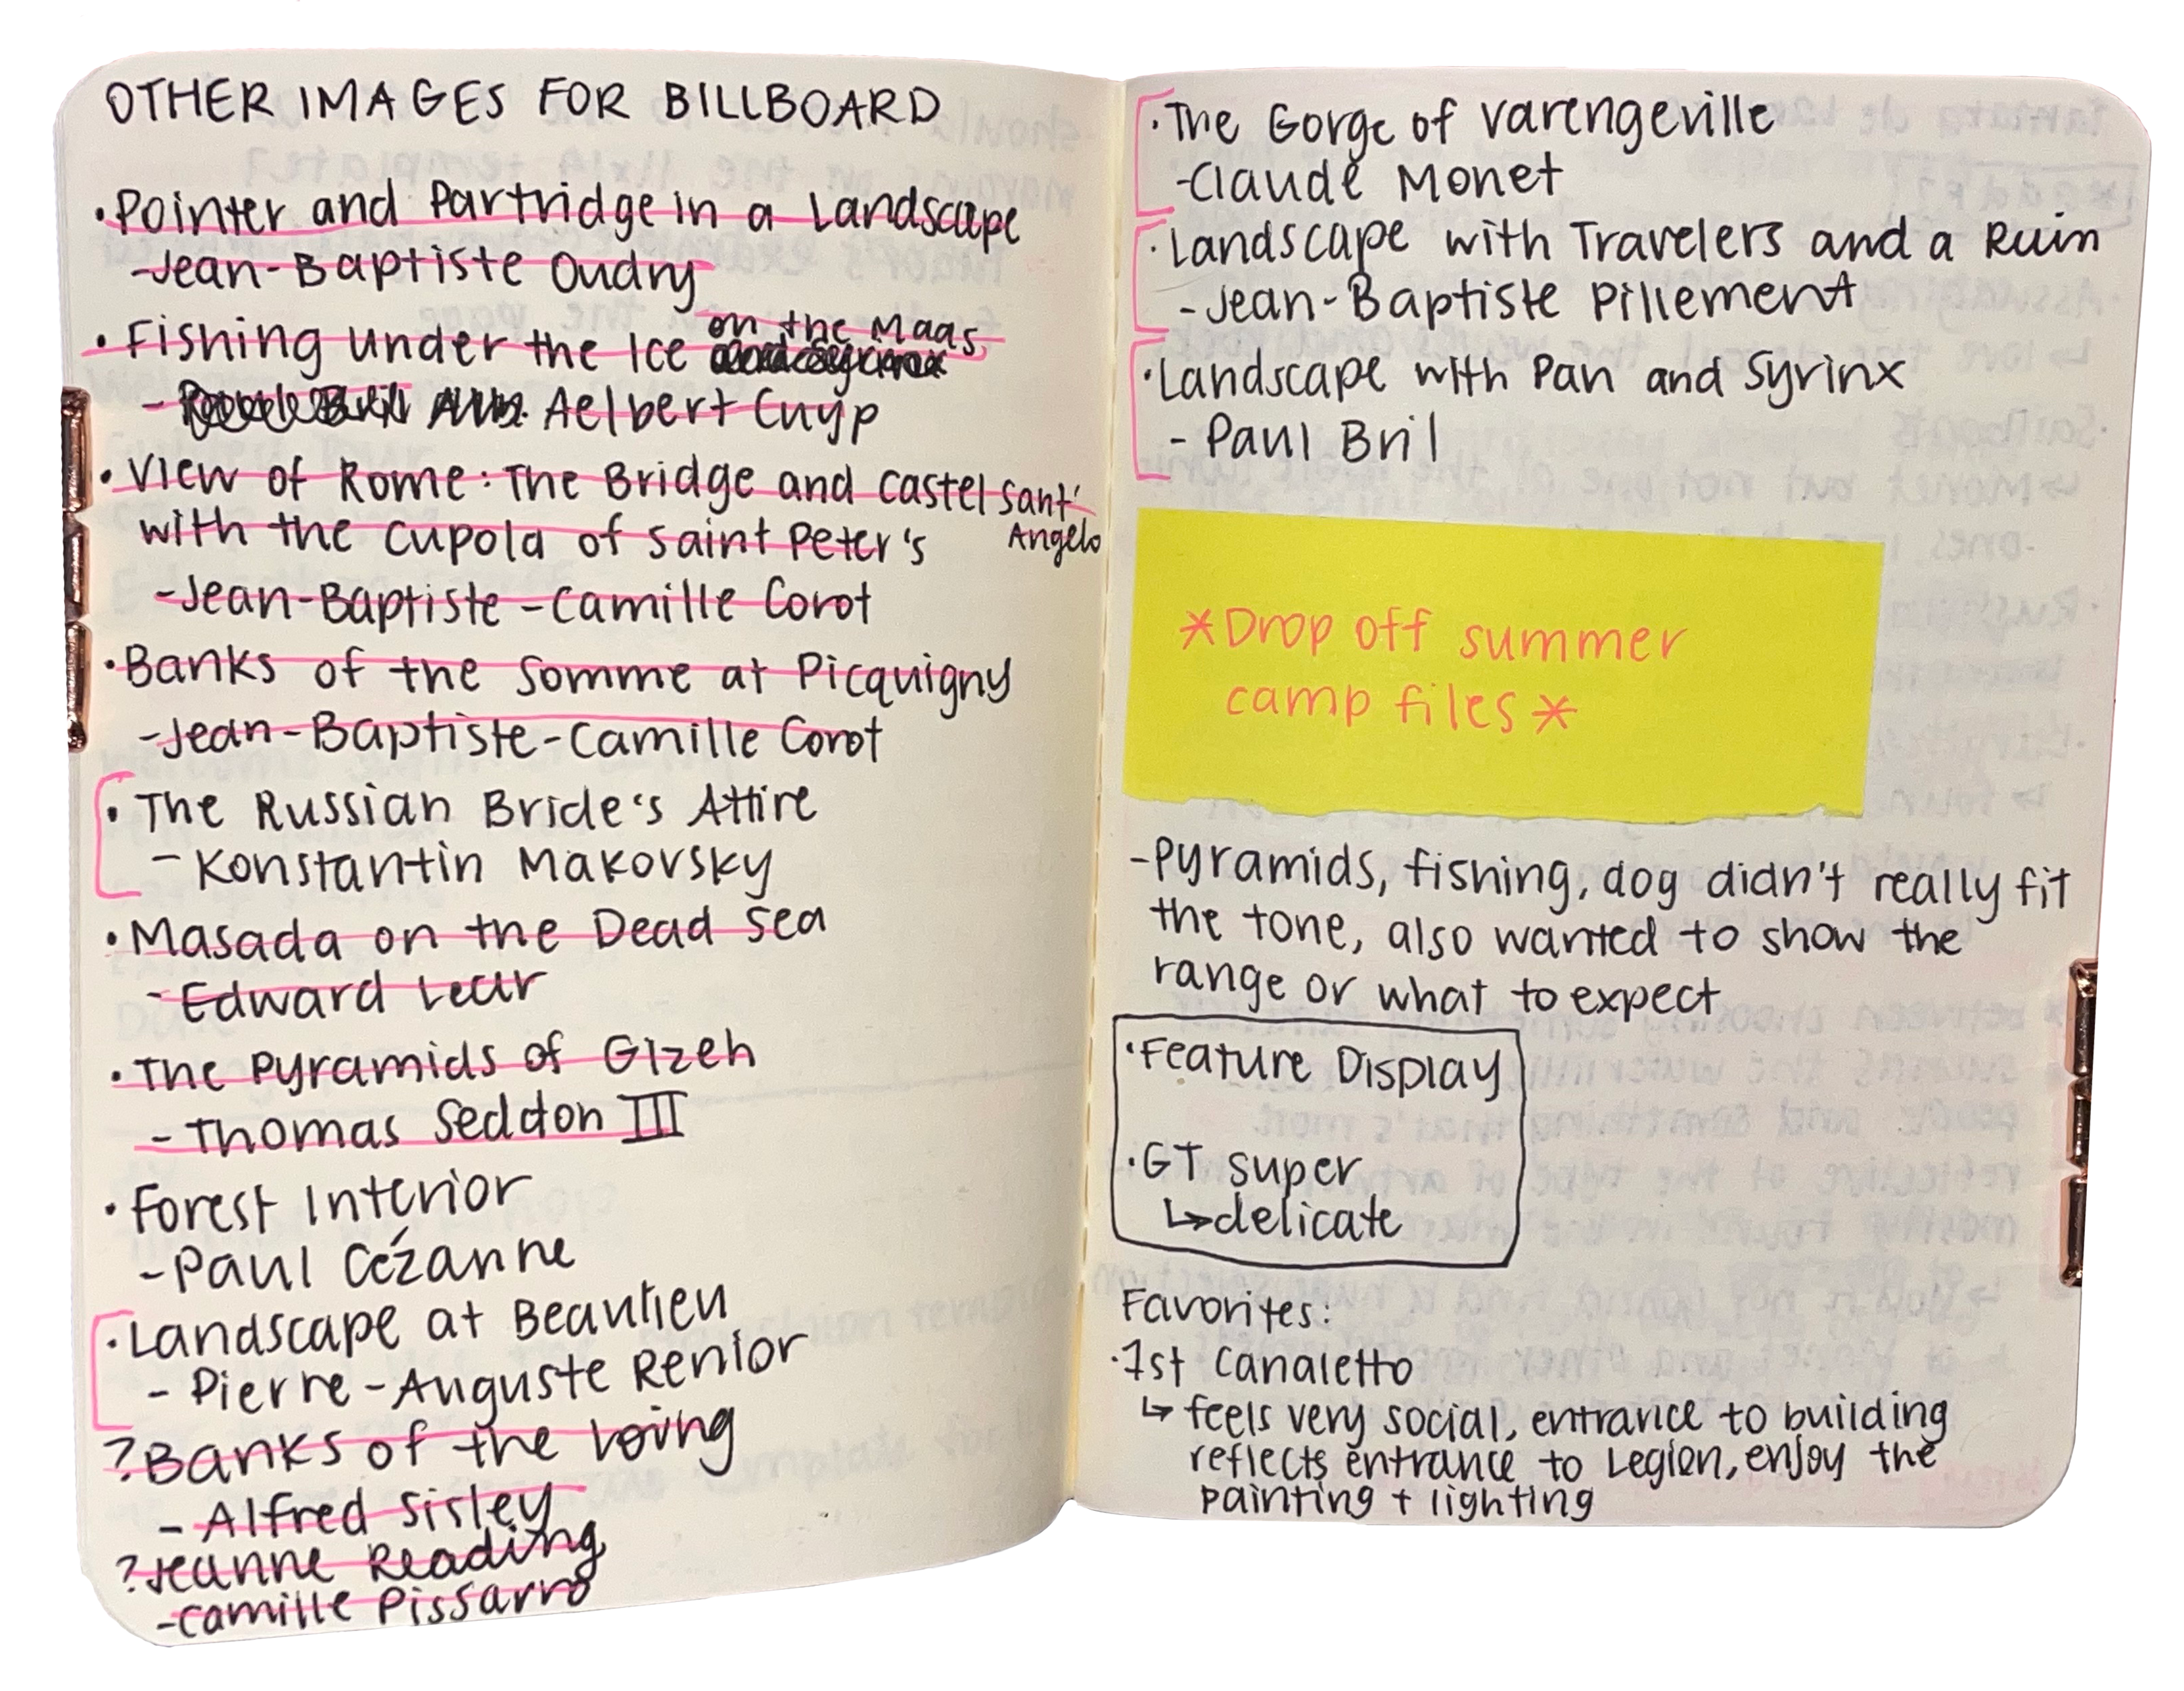 OTHER IMAGES FOR BILLBOARD
• Pointer and Partridge in a Landscape
- Jean-Baptiste Oudry
• Fishing under the Ice on the Maas
- Aelbert Cuyp
• View of Rome: The Bridge and Castel Sant' Angelo
with the Cupola of Saint Peter's
- Jean-Baptiste-Camille Corot
• Banks of the Somme at Picquigny
- Jean-Baptiste-Camille Corot
• The Russian Bride's Attire
- Konstantin Makovsky
• Masada on the Dead Sea
- Edward Lear
• The Pyramids of Gizeh
- Thomas Seddon III
• Forest Interior
- Paul Cézanne
• Landscape at Beaulieu
- Pierre-Auguste Renior
? Banks of the Loing
- Alfred Sisley
? Jeanne Reading
- Camille Pissarro
• The Gorge of Varengeville
- Claude Monet
• Landscape with Travelers and a Ruin
- Jean-Baptiste Pillement
• Landscape with Pan and Syrinx
- Paul Bril
*Drop off summer
camp files*
- Pyramids, fishing, dog didn't really fit
the tone, also wanted to show the
range or what to expect
• Feature Display
• GT super
↳ delicate
Favorites:
• 1st Canaletto
↳ feels very social, entrance to building
reflects entrance to Legion, enjoy the
painting + lighting